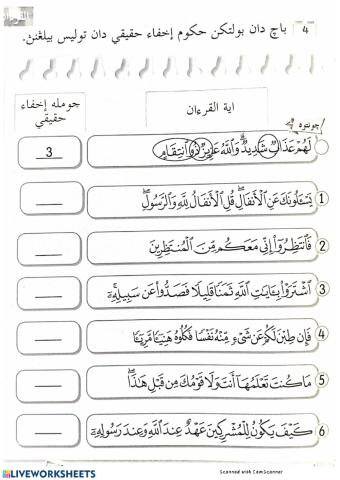 4 باچ دان بولتكن حكوم إخفاء حقيقي دان توليس بيلڠنڽ.
جومله إخفاء حقيقي
اية القرءان
چونتوه
لَهُمْ عَذَابٌ شَدِيدٌ وَاللَّهُ عَزِيزٌ ذُو انْتِقَامٍ
3
1 يَسْـَٔلُونَكَ عَنِ الْأَنْفَالِ قُلِ الْأَنْفَالُ لِلَّهِ وَالرَّسُولِ
2 فَانْتَظِرُوٓا إِنِّي مَعَكُمْ مِنَ الْمُنْتَظِرِينَ
3 اشْتَرَوْا بِـَٔايَـٰتِ اللَّهِ ثَمَنًا قَلِيلًا فَصَدُّوا عَنْ سَبِيلِهِۦٓ
4 فَإِنْ طِبْنَ لَكُمْ عَنْ شَىْءٍ مِنْهُ نَفْسًا فَكُلُوهُ هَنِيٓـًٔا مَرِيٓـًٔا
5 مَا كُنْتَ تَعْلَمُهَآ أَنْتَ وَلَا قَوْمُكَ مِنْ قَبْلِ هَـٰذَا
6 كَيْفَ يَكُونُ لِلْمُشْرِكِينَ عَهْدٌ عِنْدَ اللَّهِ وَعِنْدَ رَسُولِهِۦٓ
Scanned with CamScanner
LIVEWORKSHEETS